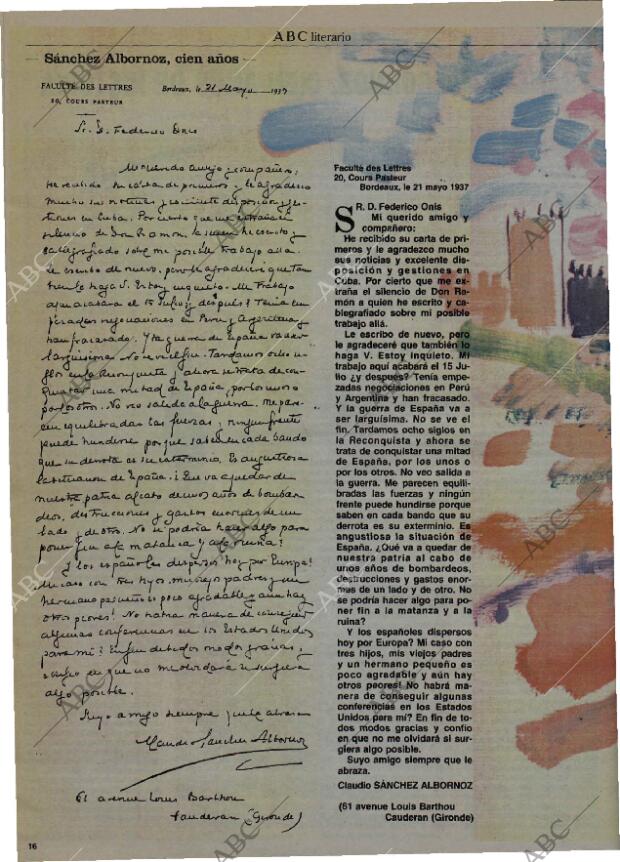 ABC literario
Sánchez Albornoz, cien años
FACULTÉ DES LETTRES
20, COURS PASTEUR
Bordeaux, le 21 Mayo 1937
Sr. D. Federico Onis
Mi querido amigo y compañero:
He recibido su carta de primeros y le agradezco
mucho sus noticias y excelente disposición y ges-
tiones en Cuba. Por cierto que me extraña el
silencio de Don Ramón a quien he escrito y
cablegrafiado sobre mi posible trabajo allá.
Le escribo de nuevo, pero le agradeceré que tam-
bién lo haga V. Estoy inquieto. Mi trabajo
aquí acabará el 15 Julio ¿y después? Tenía em-
pezadas negociaciones en Perú y Argentina y
han fracasado. Y la guerra de España va a ser
larguísima. No se ve el fin. Tardamos ocho si-
glos en la Reconquista y ahora se trata de con-
quistar una mitad de España, por los unos o
por los otros. No veo salida a la guerra. Me pare-
cen equilibradas las fuerzas y ningún frente
puede hundirse porque saben en cada bando
que su derrota es su exterminio. Es angustiosa
la situación de España. ¿Qué va a quedar de
nuestra patria al cabo de unos años de bombar-
deos, destrucciones y gastos enormes de un
lado y de otro. No se podría hacer algo para
poner fin a la matanza y a la ruina?
Y los españoles dispersos hoy por Europa?
Mi caso con tres hijos, mis viejos padres y un
hermano pequeño es poco agradable y aún hay
otros peores! No habrá manera de conseguir
algunas conferencias en los Estados Unidos
para mí? En fin de todos modos gracias,
y confío en que no me olvidará si surgiera
algo posible.
Suyo amigo siempre que le abraza
Claudio Sánchez Albornoz
61 avenue Louis Barthou
Cauderan (Gironde)
Faculté des Lettres
20, Cours Pasteur
Bordeaux, le 21 mayo 1937
SR. D. Federico Onis
Mi querido amigo y
compañero:
He recibido su carta de pri-
meros y le agradezco mucho
sus noticias y excelente dis-
posición y gestiones en
Cuba. Por cierto que me ex-
traña el silencio de Don Ra-
món a quien he escrito y
cablegrafiado sobre mi posible
trabajo allá.
Le escribo de nuevo, pero
le agradeceré que también lo
haga V. Estoy inquieto. Mi
trabajo aquí acabará el 15
Julio ¿y después? Tenía empe-
zadas negociaciones en Perú
y Argentina y han fracasado.
Y la guerra de España va a
ser larguísima. No se ve el
fin. Tardamos ocho siglos en
la Reconquista y ahora se
trata de conquistar una mitad
de España, por los unos o
por los otros. No veo salida a
la guerra. Me parecen equili-
bradas las fuerzas y ningún
frente puede hundirse porque
saben en cada bando que su
derrota es su exterminio. Es
angustiosa la situación de
España. ¿Qué va a quedar de
nuestra patria al cabo de
unos años de bombardeos,
destrucciones y gastos enor-
mes de un lado y de otro. No
se podría hacer algo para po-
ner fin a la matanza y a la
ruina?
Y los españoles dispersos
hoy por Europa? Mi caso con
tres hijos, mis viejos padres
y un hermano pequeño es
poco agradable y aún hay
otros peores! No habrá ma-
nera de conseguir algunas
conferencias en los Estados
Unidos para mí? En fin de to-
dos modos gracias y confío
en que no me olvidará si sur-
giera algo posible.
Suyo amigo siempre que le
abraza.
Claudio SÁNCHEZ ALBORNOZ
(61 avenue Louis Barthou
Cauderan (Gironde)
16